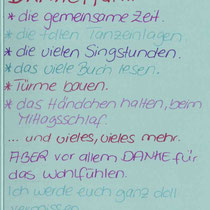 * die gemeinsame Zeit.
* die tollen Tanzeinlagen,
* die vielen Singstunden.
* das viele Buch lesen.
* Türme bauen.
* das Händchen halten, beim
Mittagsschlaf.
... und vieles, vieles mehr.
ABER vor allem DANKE für
das Wohlfühlen.
Ich werde euch ganz doll